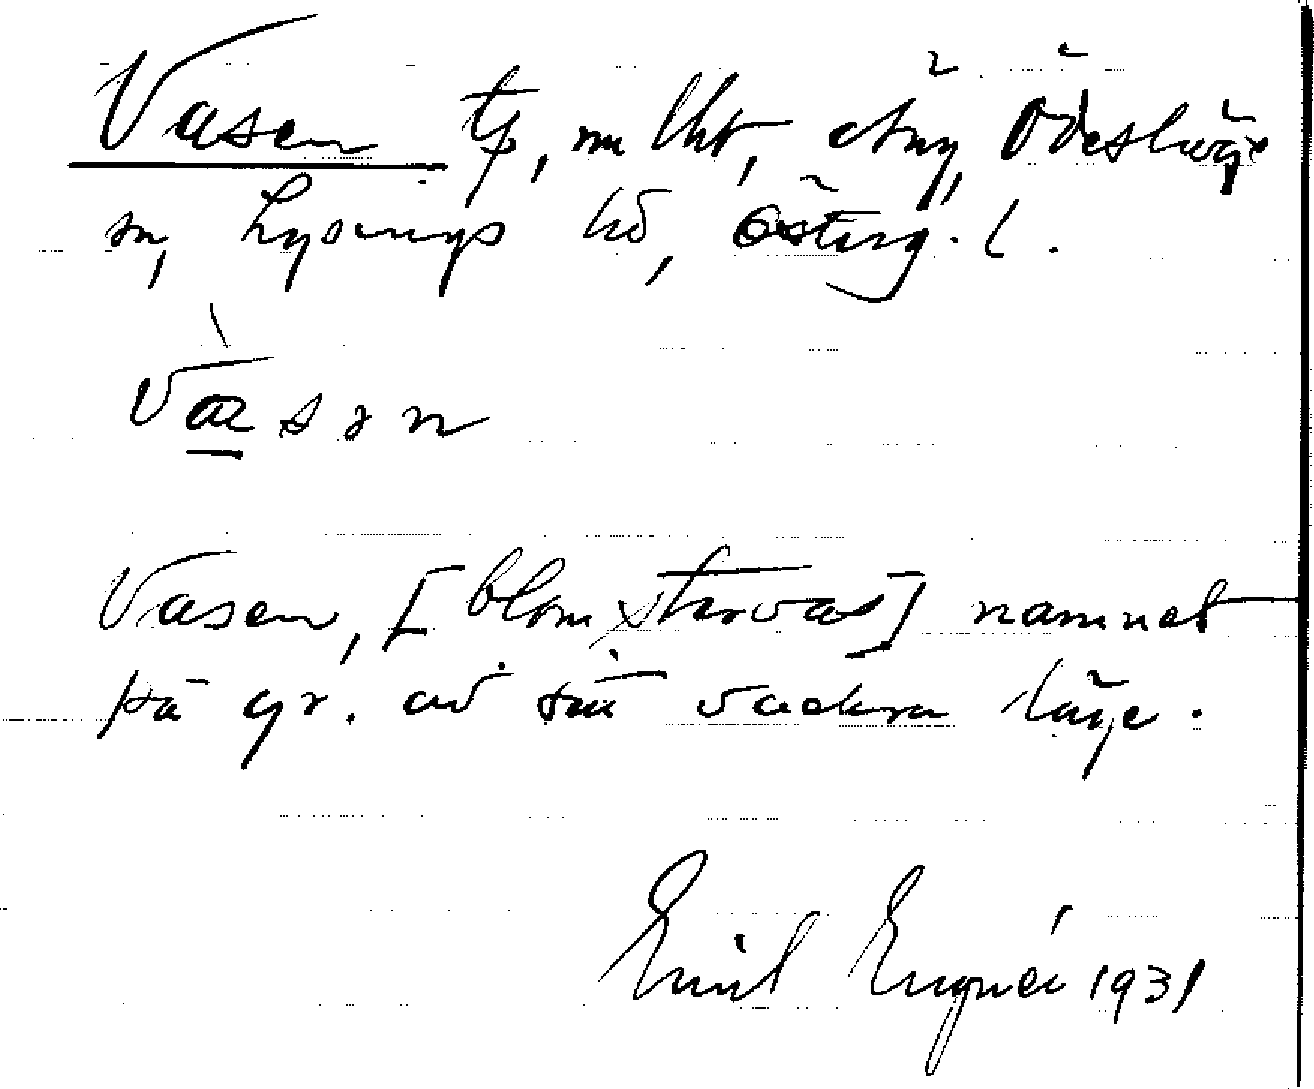 Vasen tp, nu lht, Ödeshögs
sn, Lysings hd, Österg. l.
vasən
Vasen, [blomstervas] namnet
på gr. av sitt vackra läge.
Emil Engnér 1931